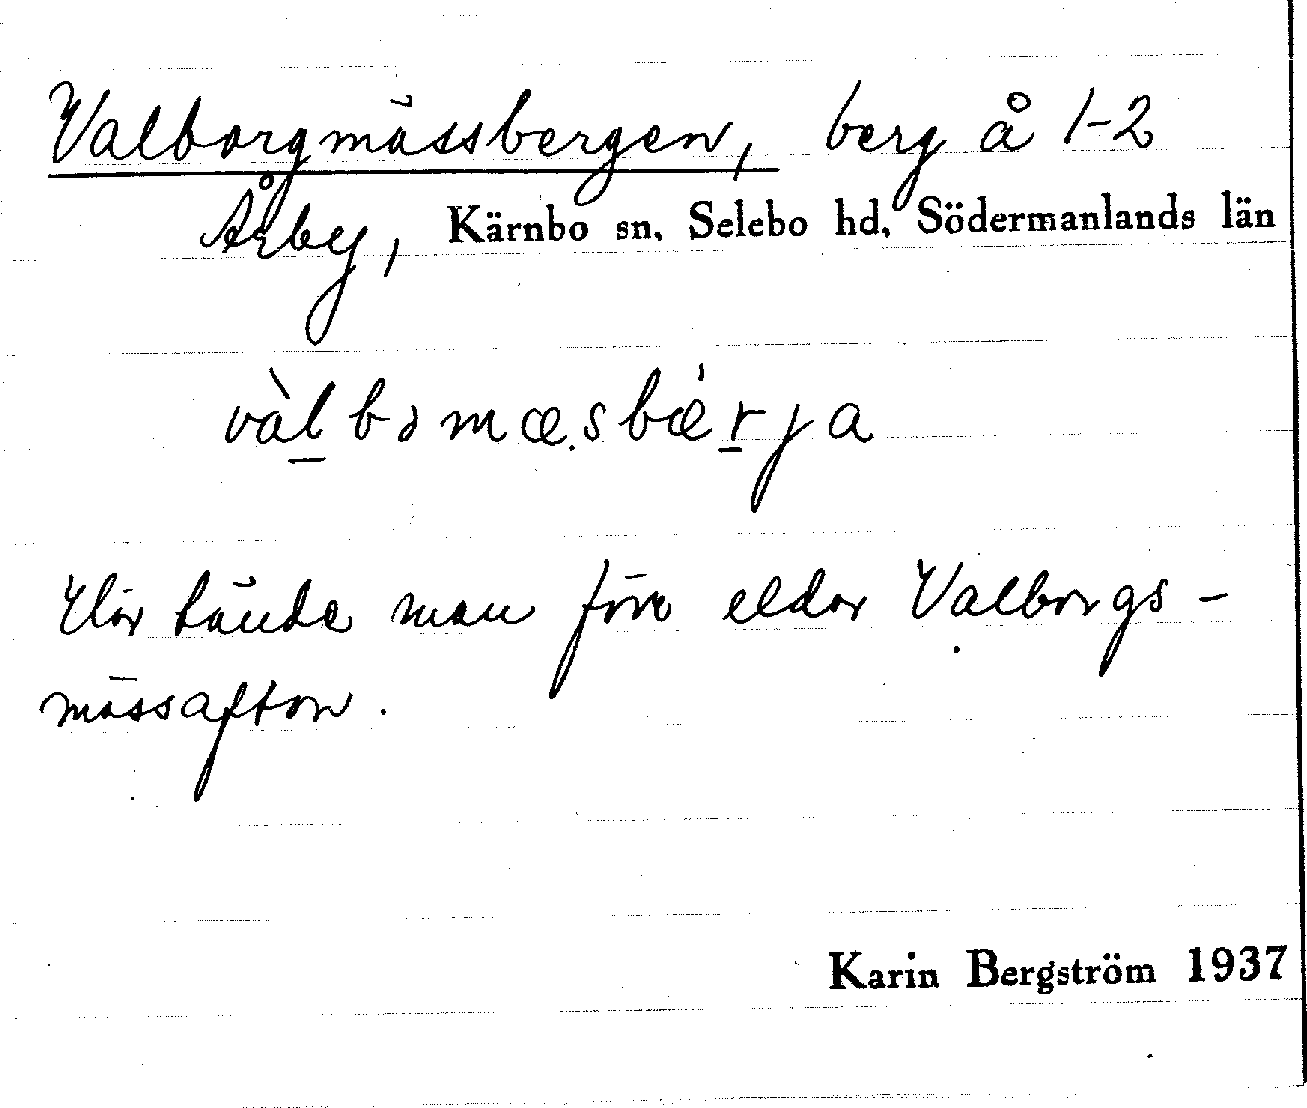 Valborgmässbergen, berg å 1-2
Årby, Kärnbo sn, Selebo hd, Södermanlands län
vàl̲bəmæ.sbæ̀r̲ja
Här tände man förr eldar Valborgs-
mässafton.
Karin Bergström 1937